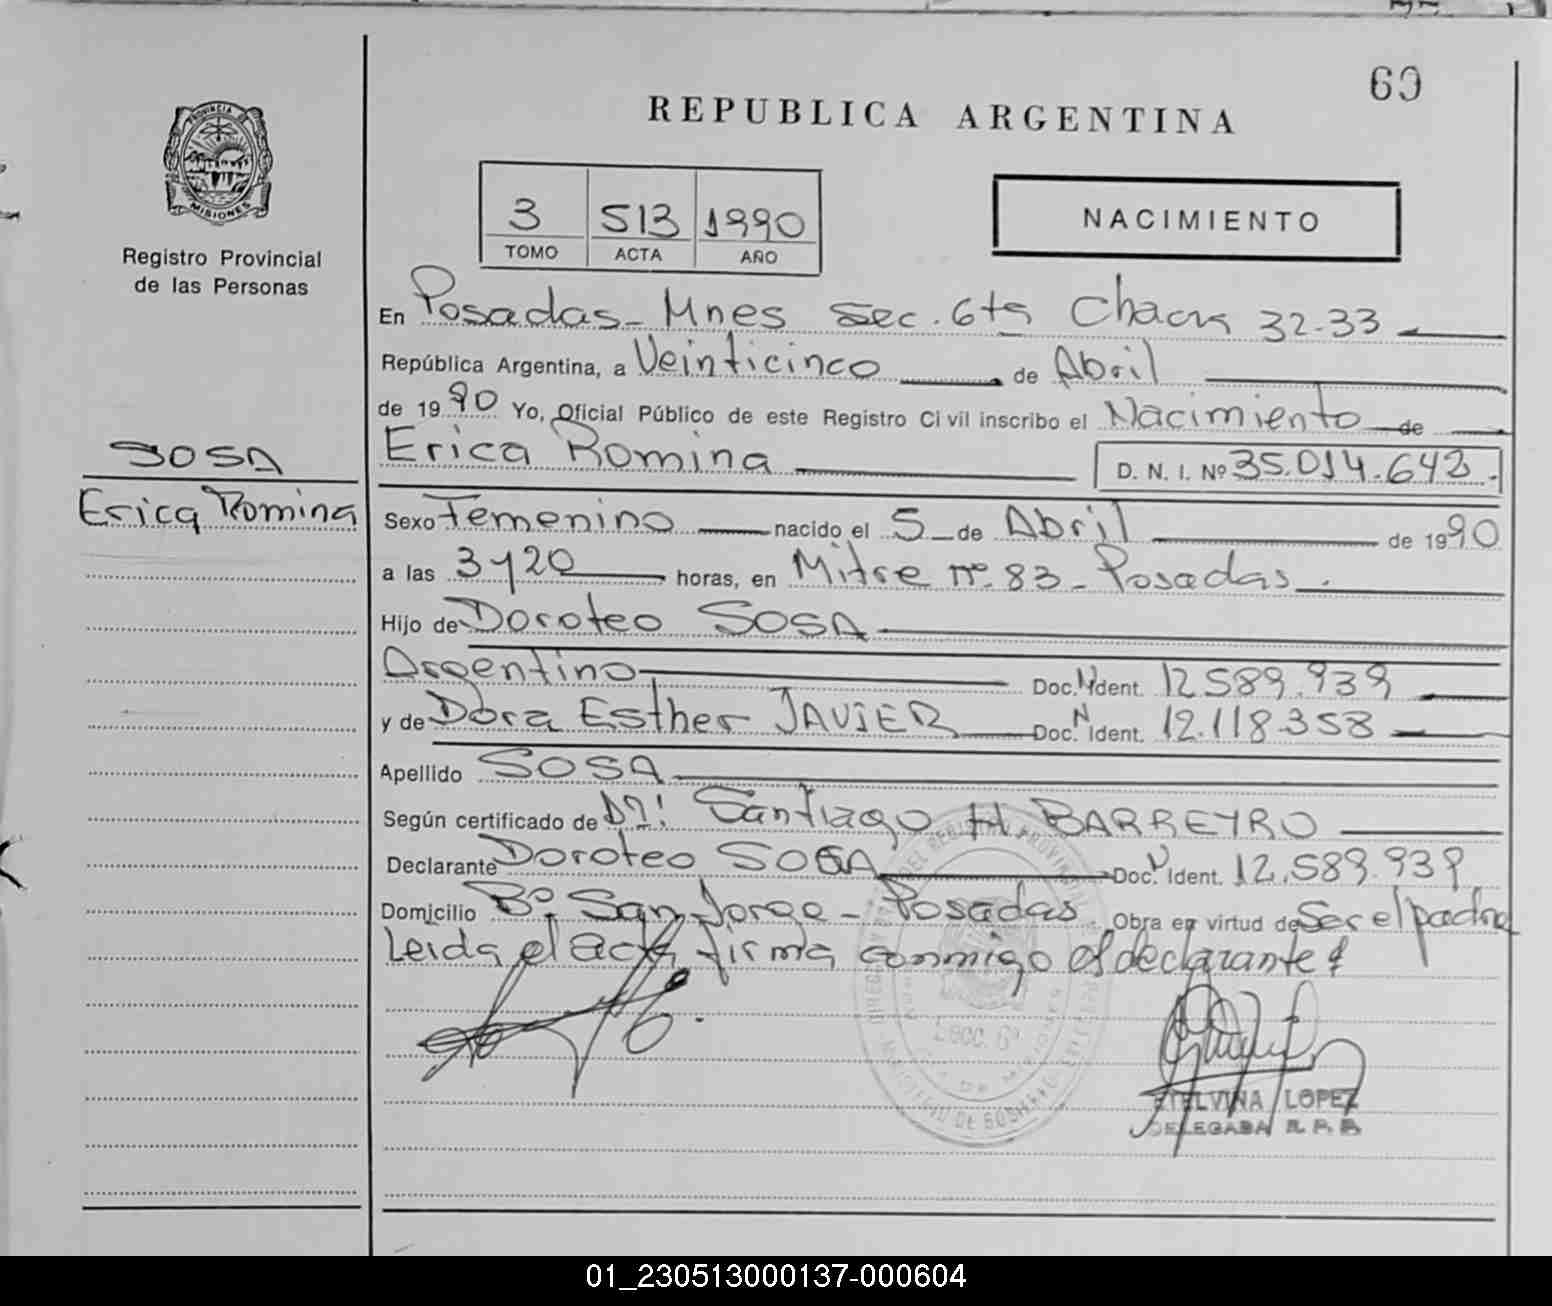 69
REPUBLICA ARGENTINA
PROVINCIA DE
MISIONES
Registro Provincial
de las Personas
3 513 1990
TOMO ACTA AÑO
NACIMIENTO
En Posadas - Mnes sec. 6ta Chacra 32-33
República Argentina, a Veinticinco de Abril
de 1990 Yo, Oficial Público de este Registro Civil inscribo el Nacimiento de
Erica Romina D. N. I. Nº 35.014.642.
SOSA
Erica Romina
Sexo Femenino nacido el 5 de Abril de 1990
a las 3 y 20 horas, en Mitre nº. 83 - Posadas.
Hijo de Doroteo SOSA
Argentino Doc. N Ident. 12.589.939
y de Dora Esther JAVIER Doc. N Ident. 12.118.358
Apellido SOSA
Según certificado de Dr: Santiago H BARREYRO
Declarante Doroteo SOSA Doc. N Ident. 12.589.939
Domicilio Bº. San Jorge - Posadas Obra en virtud de Ser el padre
Leida el acta firma conmigo el declarante
Secc. 6ª
ETELVINA LOPEZ
DELEGADA R. P. P.
01_230513000137-000604